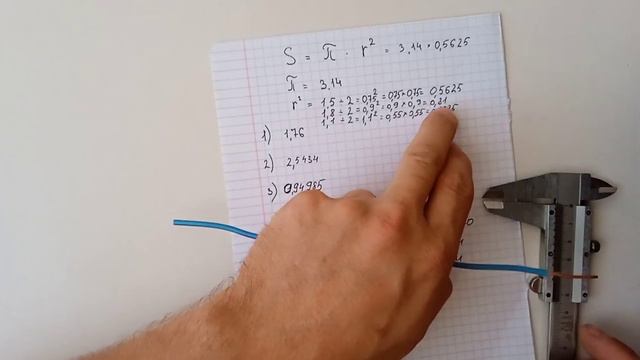 S = π · r² = 3,14 · 0,5625
π = 3,14
r² = 1,5 ÷ 2 = 0,75² = 0,75 × 0,75 = 0,5625
1,8 ÷ 2 = 0,9² = 0,9 × 0,9 = 0,81
1,1 ÷ 2 = 1,1² = 0,55 × 0,55 =
1) 1,76
2) 2,5434
3) 0,94985